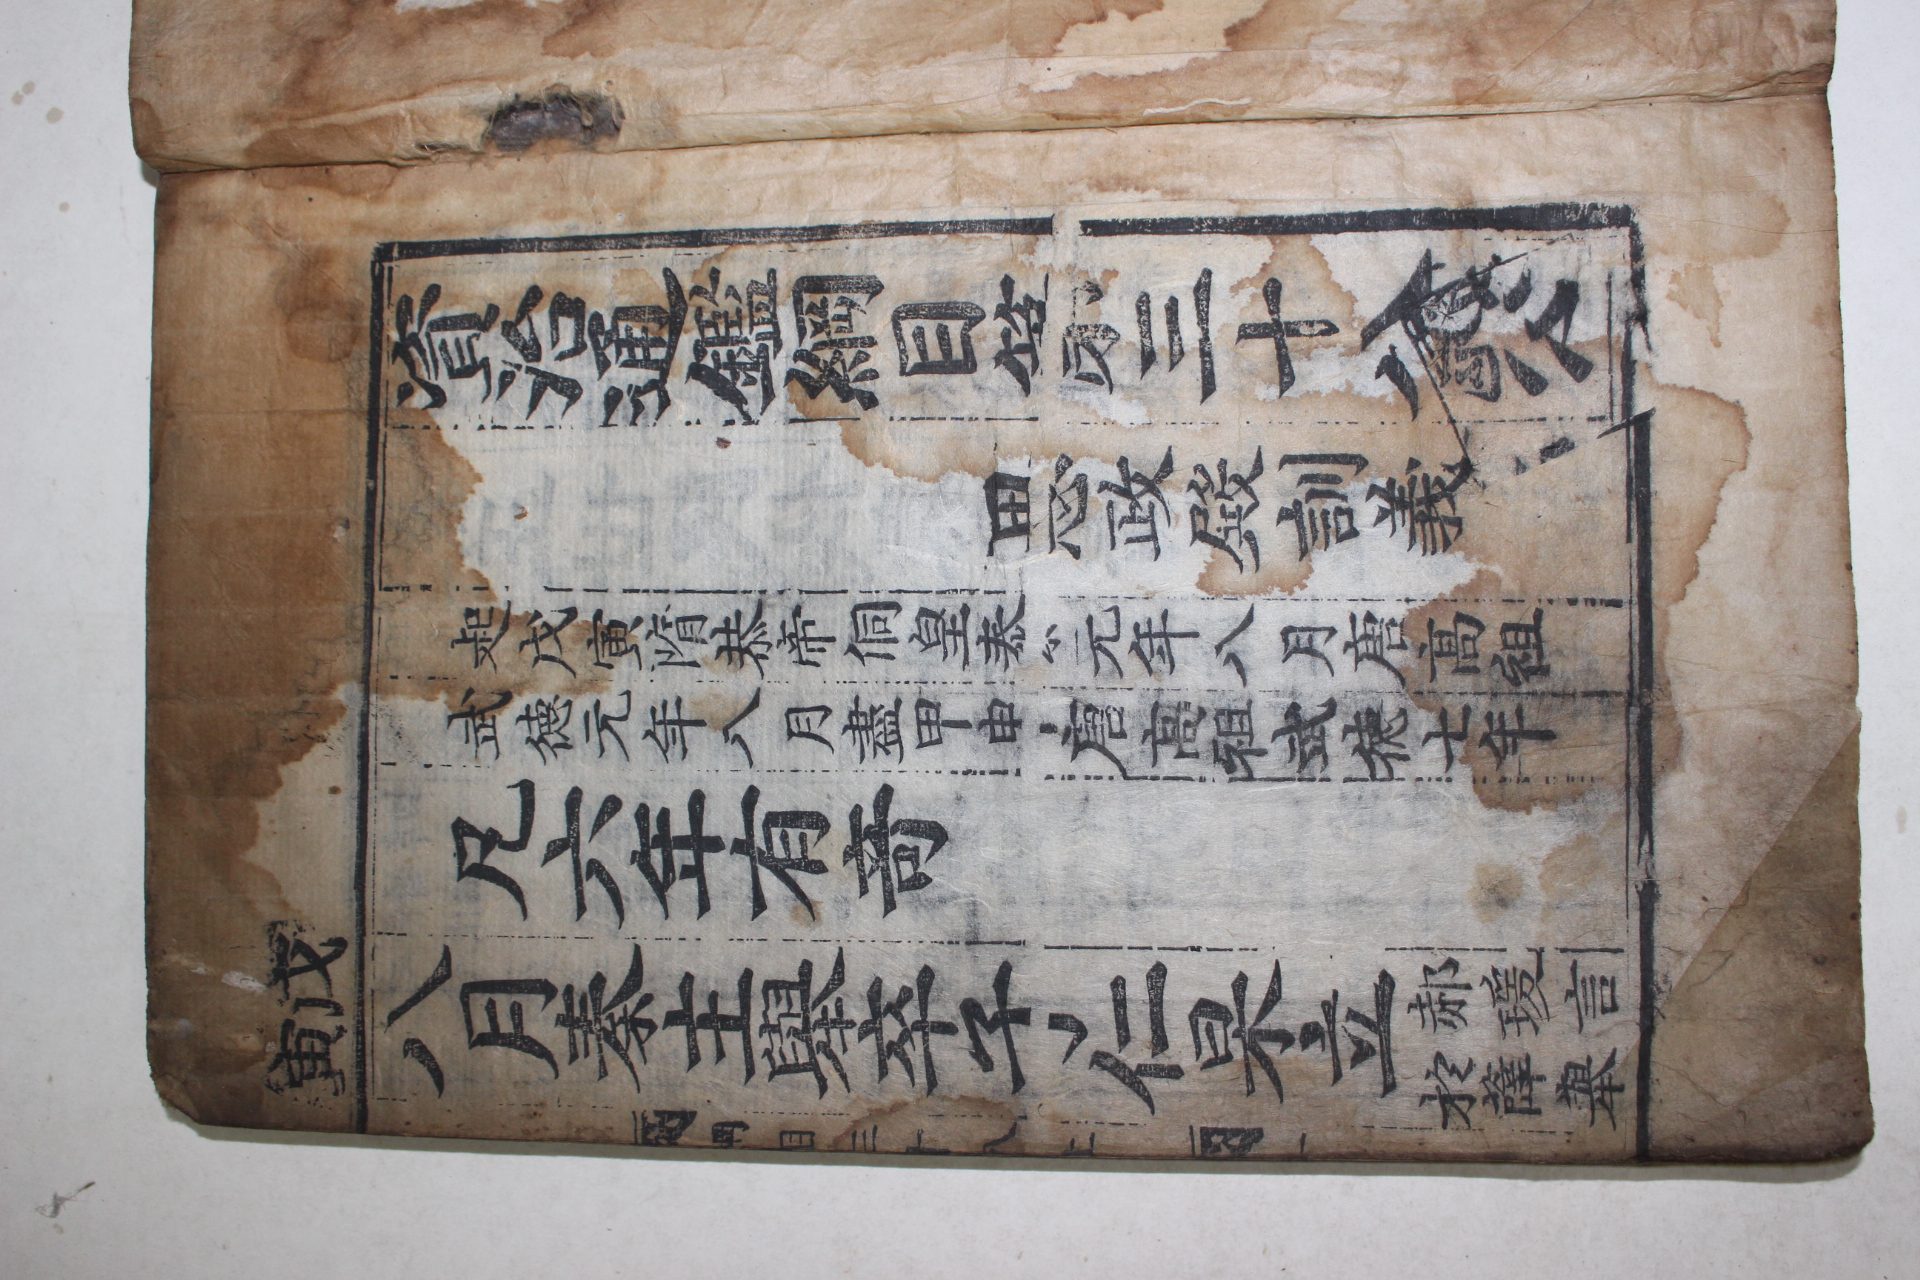 資治通鑑綱目第三十八
思政殿訓義
起戊寅隋恭帝侗皇泰元年八月唐高祖
武德元年八月盡甲申唐高祖武德七年
凡六年有奇
戊寅
八月秦主舉卒子仁杲立
郝瑗言
於薛舉
綱目三十八上